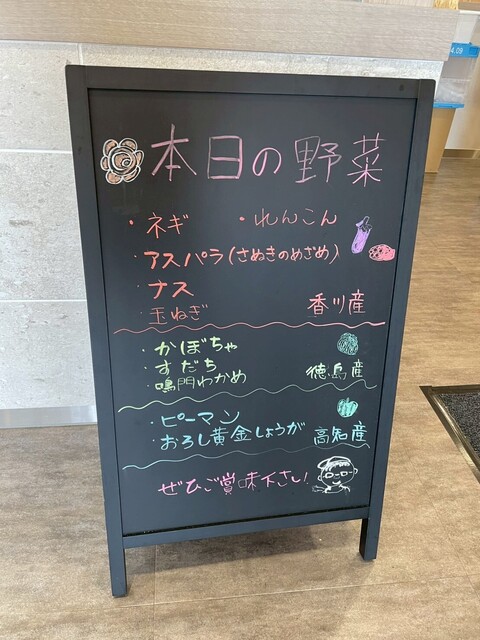 本日の野菜
・ネギ ・れんこん
・アスパラ(さぬきのめざめ)
・ナス
・玉ねぎ 香川産
・かぼちゃ
・すだち
・鳴門わかめ 徳島産
・ピーマン
・おろし黄金しょうが 高知産
ぜひご賞味下さい!
4.09